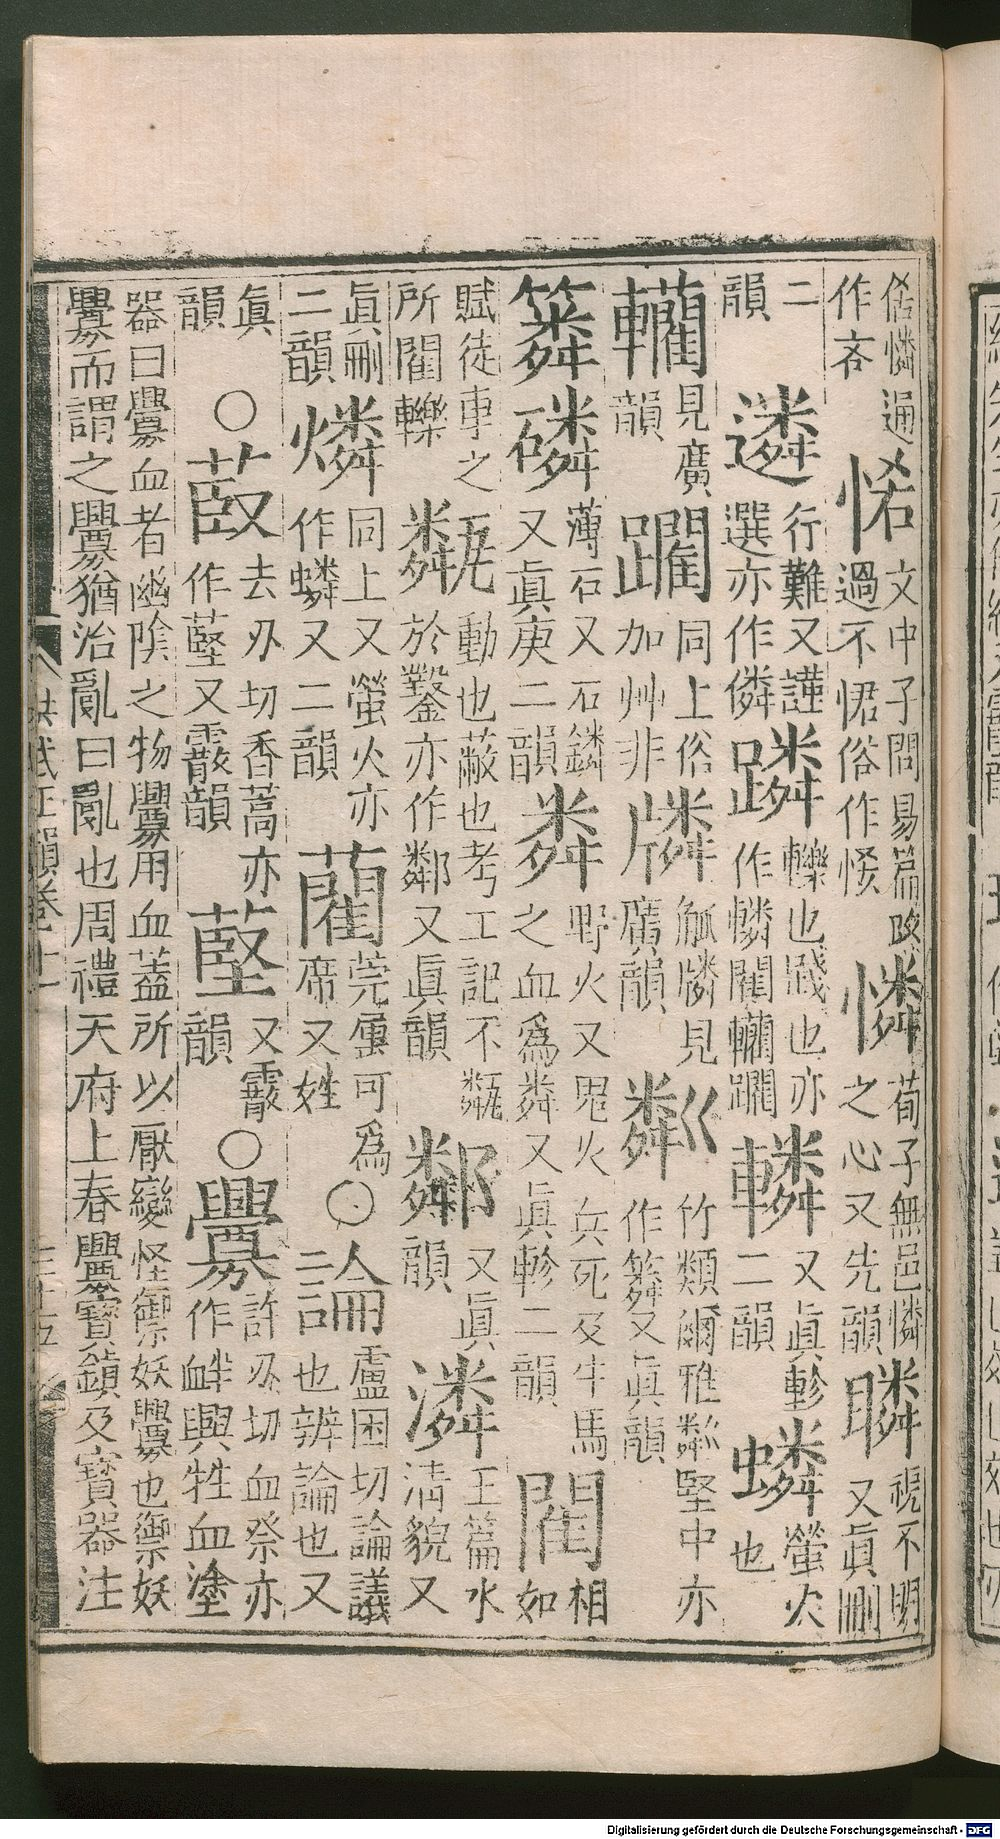 俗憐通 悋 文中子問易篇 憐 荀子無邑憐 瞵 視不明
作吝 過不悋俗作恡 之心又先韻 又眞刪
二 遴 行難又謹 蹸 轢也踐也亦 轔 又眞軫 蟒 螢火
韻 選亦作僯 作轥閵轥躙 二韻 也
轥 見廣 躪 同上俗 㸍 觚㸍見 粼 竹類爾雅粼堅中亦
韻 加艸非 廣韻 作簝又眞韻
䉮 磷 薄石又石鏻 粦 野火又鬼火兵死及牛馬 閵 相
又眞庚二韻 之血爲粦又眞軫二韻 如
賦徒車之 甐 動也蔽也考工記不甐 鄰 又眞 潾 玉篇水
所閵轢 於鑿亦作鄰又眞韻 韻 淸貌又
眞刪 燐 同上又螢火亦 藺 莞屬可爲 ○論 盧困切論議
二韻 作蟒又二韻 席又姓 也辨論也又
眞 ○菣 去刃切香蒿亦 藖 又霰 ○釁 許刃切血祭亦
韻 作藖又霰韻 韻 作衅興牲血塗
器曰釁血者幽陰之物釁用血蓋所以厭變怪禦妖釁也禦妖
釁而謂之釁猶治亂曰亂也周禮天府上春釁寶鎭及寶器注
洪武正韻卷十一 三十五
Digitalisierung gefördert durch die Deutsche Forschungsgemeinschaft - DFG